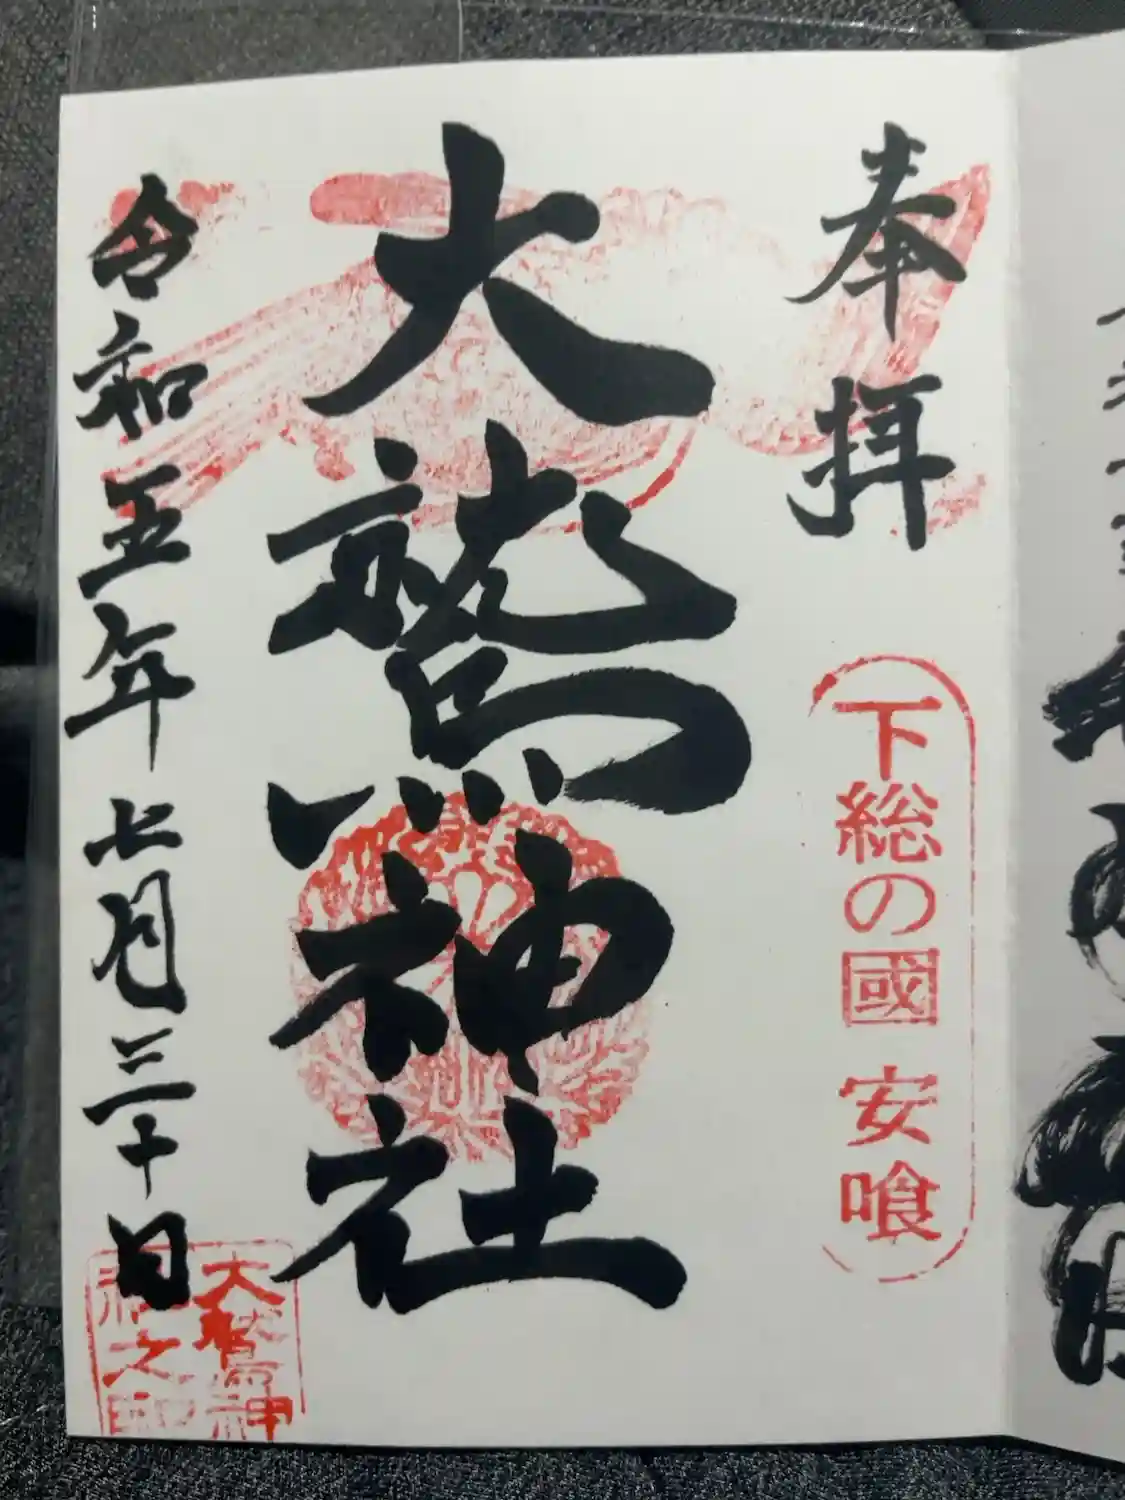 奉拝
下総の國 安喰
大鷲神社
令和五年七月三十日
大鷲神
社之印